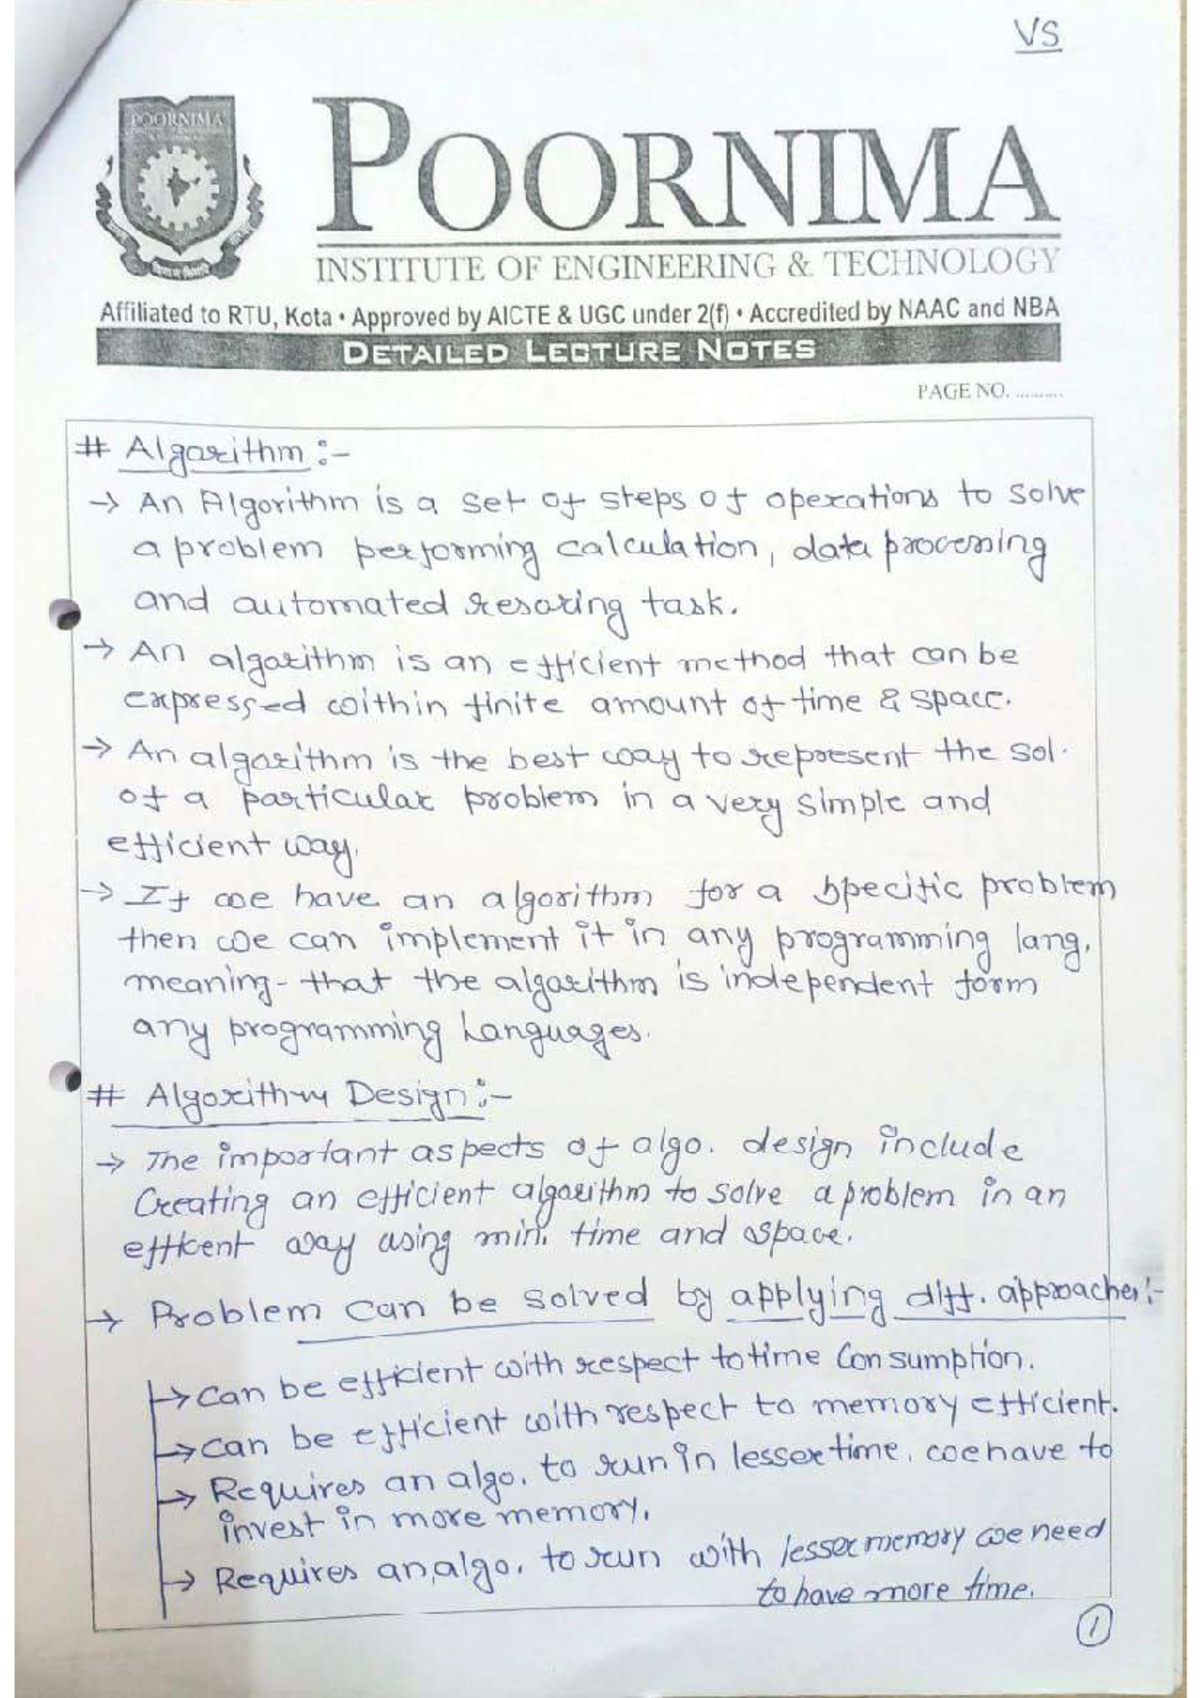 VS
POORNIMA
POORNIMA
INSTITUTE OF ENGINEERING & TECHNOLOGY
Affiliated to RTU, Kota • Approved by AICTE & UGC under 2(f) • Accredited by NAAC and NBA
DETAILED LECTURE NOTES
PAGE NO. ..........
# Algorithm :-
→ An Algorithm is a set of steps of operations to solve
a problem performing calculation, data processing
and automated resoring task.
→ An algorithm is an efficient method that can be
expressed within finite amount of time & space.
→ An algorithm is the best way to represent the sol.
of a particular problem in a very simple and
efficient way.
→ If we have an algorithm for a specific problem
then we can implement it in any programming lang,
meaning - that the algorithm is independent form
any programming languages.
# Algorithm Design :-
→ The important aspects of algo. design include
Creating an efficient algorithm to solve a problem in an
efficent way using min. time and space.
→ Problem can be solved by applying diff. approaches :-
→ can be efficient with respect to time Consumption.
→ can be efficient with respect to memory efficient.
→ Requires an algo. to run in lesser time, we have to
invest in more memory.
→ Requires an algo. to run with lesser memory we need
to have more time.
1